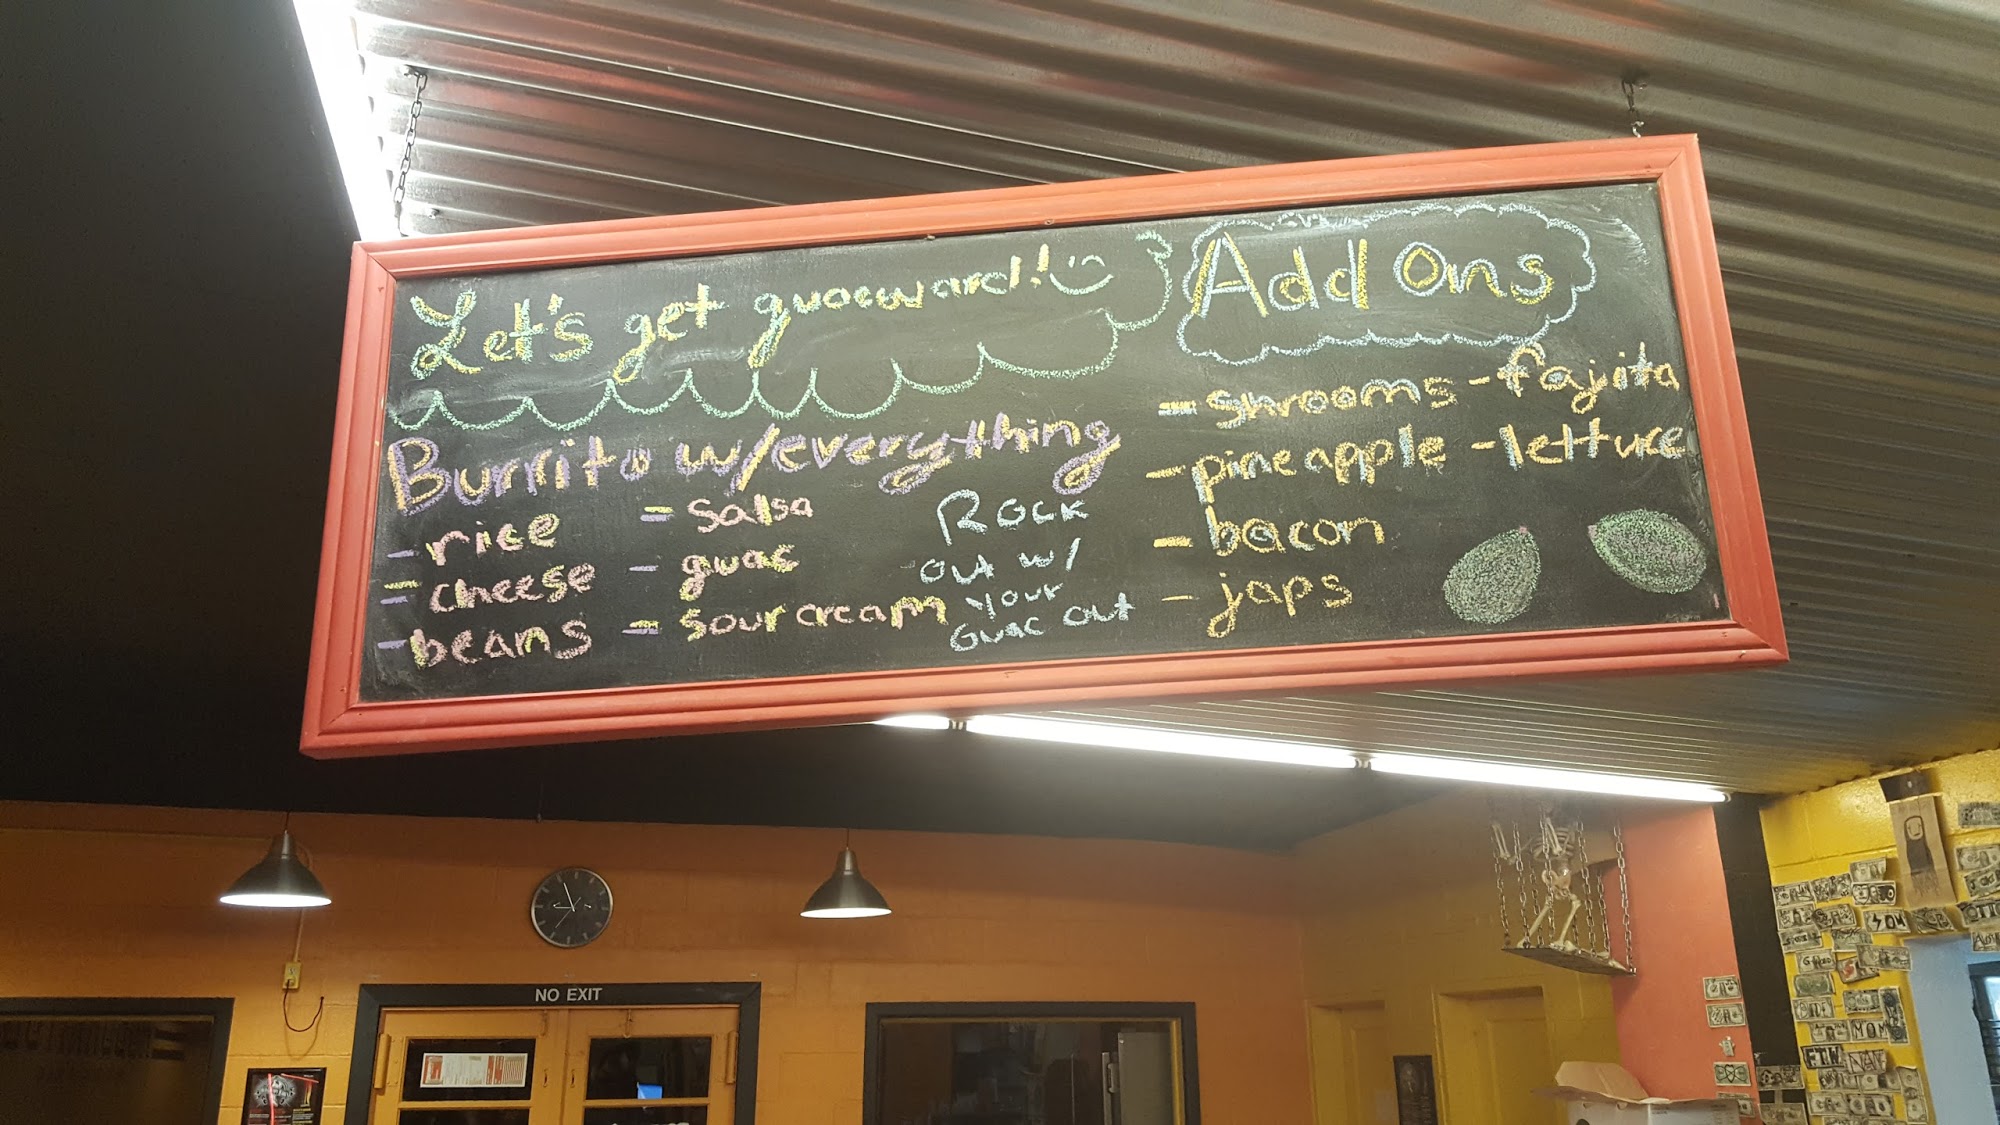 Let's get guacward!
Burrito w/everything
- rice
= cheese
- beans
= salsa
- guac
= sour cream
Rock
out w/
your
Guac out
Add Ons
- shrooms - fajita
- pineapple - lettuce
- bacon
- japs
NO EXIT
MOM
FTW
NAV